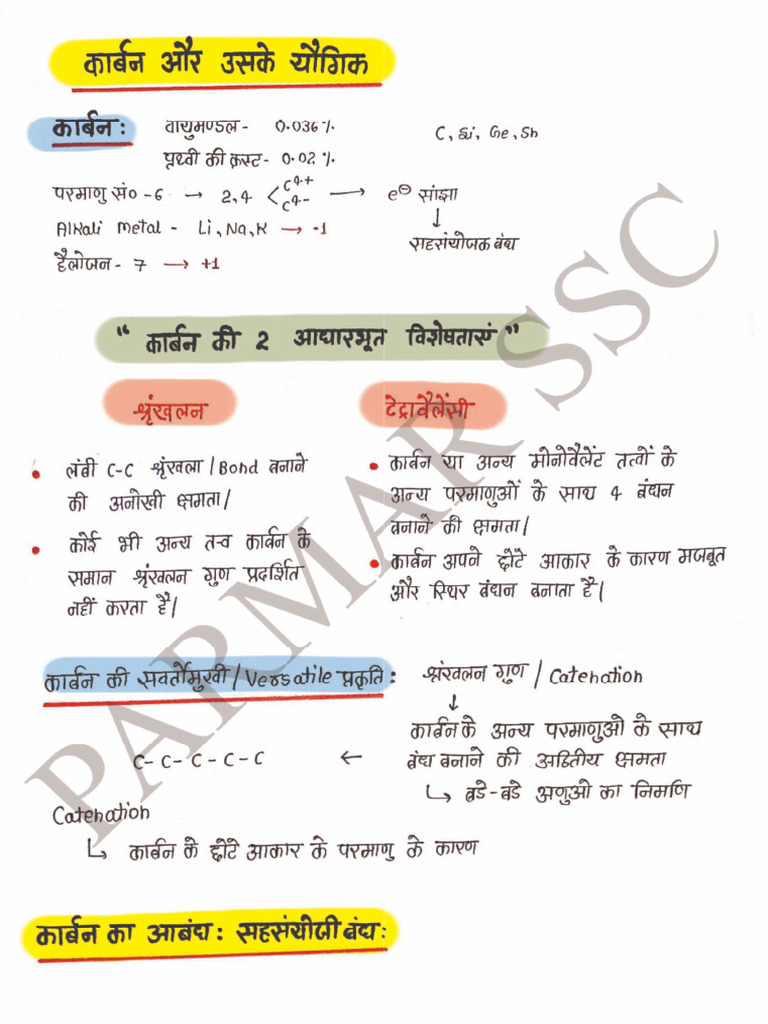 कार्बन और उसके यौगिक
कार्बन: वायुमण्डल- 0.036% C, Si, Ge, Sn
पृथ्वी की क्रस्ट- 0.02%
परमाणु सं० -6 → 2,4 < C4+ C4- → e⊖ सांझा
↓
Alkali Metal - Li, Na, K → -1 सहसंयोजक बंध
हैलोजन- 7 → +1
“ कार्बन की 2 आधारभूत विशेषताएं ”
श्रृंखलन
• लंबी C-C श्रृंखला/Bond बनाने
की अनोखी क्षमता/
• कोई भी अन्य तत्व कार्बन के
समान श्रृंखलन गुण प्रदर्शित
नहीं करता है/
टेट्रावैलेंसी
• कार्बन या अन्य मोनोवैलेंट तत्वों के
अन्य परमाणुओं के साथ 4 बंधन
बनाने की क्षमता/
• कार्बन अपने छोटे आकार के कारण मजबूत
और स्थिर बंधन बनाता है/
कार्बन की सवर्तोमुखी/Versatile प्रकृति: श्रृंखलन गुण / Catenation
↓
कार्बन के अन्य परमाणुओ के साथ
C-C-C-C-C ← बंध बनाने की अद्वितीय क्षमता
↳ बडे-बडे अणुओ का निर्माण
Catenation
↳ कार्बन के छोटे आकार के परमाणु के कारण
कार्बन का आबंध: सहसंयोजी बंध:
PARMAR SSC